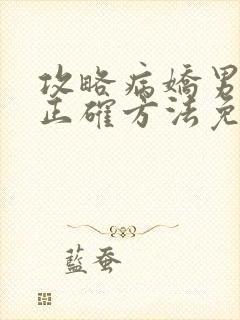 攻略病嬌男
正確方法免
藍蚕